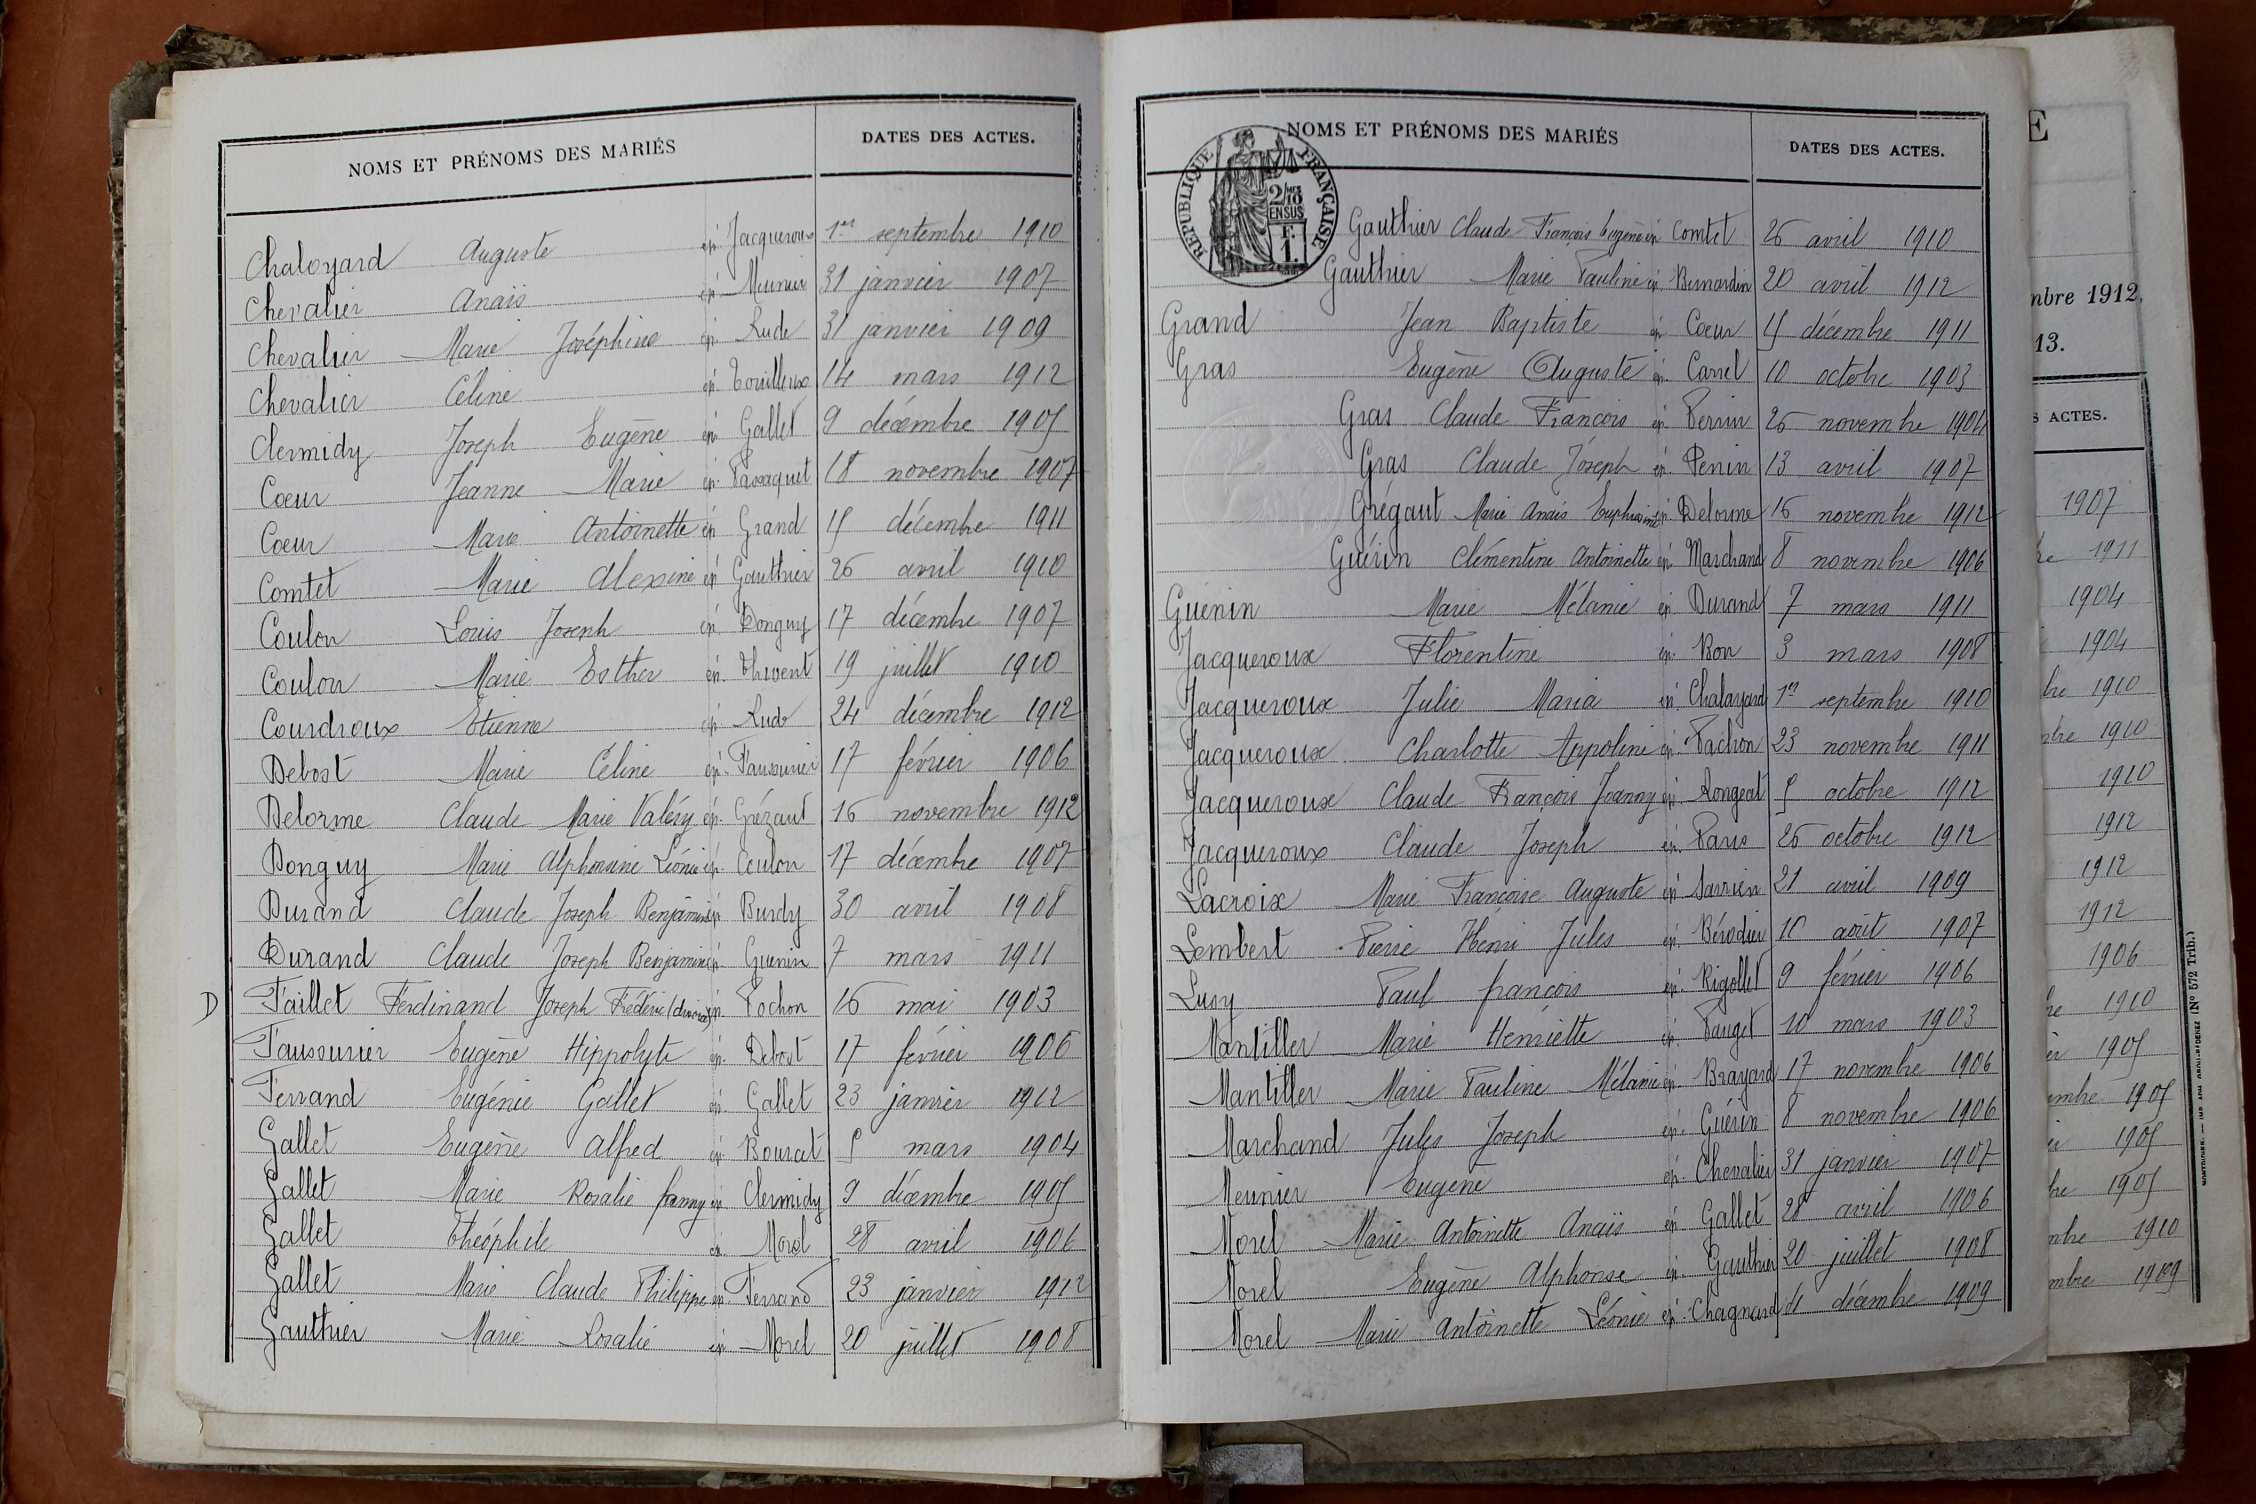 NOMS ET PRÉNOMS DES MARIÉS DATES DES ACTES.
Chaloyard Auguste ép. Jacqueroux 1er septembre 1910
Chevalier Anaïs ép. Meunier 31 janvier 1907
Chevalier Marie Joséphine ép. Rude 31 janvier 1909
Chevalier Céline ép. 14 mars 1912
Clermidy Joseph Eugène ép. Gallet 9 décembre 1905
Coeur Jeanne Marie ép. 18 novembre 1907
Coeur Marie Antoinette ép. Grand 15 décembre 1911
Comtet Marie Alexine ép. Gauthier 26 avril 1910
Coulon Louis Joseph ép. Donguy 17 décembre 1907
Coulon Marie Esther ép. Thivent 19 juillet 1910
Courdroux Etienne ép. Rude 24 décembre 1912
Debost Marie Céline ép. Faussurier 17 février 1906
Delorme Claude Marie Valéry ép. Grézaut 16 novembre 1912
Donguy Marie Alphonsine Léonie ép. Coulon 17 décembre 1907
Durand Claude Joseph Benjamin ép. Burdy 30 avril 1908
Durand Claude Joseph Benjamin ép. Guénin 7 mars 1911
D Faillet Ferdinand Joseph Frédéric (divorcé) ép. Pochon 16 mai 1903
Faussurier Eugène Hippolyte ép. Debost 17 février 1906
Ferrand Eugénie Gallet ép. Gallet 23 janvier 1912
Gallet Eugène Alfred ép. Bourcet 5 mars 1904
Gallet Marie Rosalie fanny ép. Clermidy 9 décembre 1905
Gallet Théophile ép. Morel 28 avril 1906
Gallet Marie Claude Philippe ép. Ferrand 23 janvier 1912
Gauthier Marie Rosalie ép. Morel 20 juillet 1908
NOMS ET PRÉNOMS DES MARIÉS DATES DES ACTES.
RÉPUBLIQUE FRANÇAISE
2/10
MES
EN SUS
F.
1.
Gauthier Claude François Eugène ép. Comtet 26 avril 1910
Gauthier Marie Pauline ép. Bernardin 20 avril 1912
Grand Jean Baptiste ép. Coeur 15 décembre 1911
Gras Eugène Auguste ép. Carrel 10 octobre 1903
Gras Claude François ép. Perrin 26 novembre 1904
Gras Claude Joseph ép. Penin 13 avril 1907
Grégaut Marie Anaïs Euphrasine ép. Delorme 16 novembre 1912
Guérin Clémentine Antoinette ép. Marchand 8 novembre 1906
Guénin Marie Mélanie ép. Durand 7 mars 1911
Jacqueroux Florentine ép. Bon 3 mars 1908
Jacqueroux Julie Maria ép. Chalayard 1er septembre 1910
Jacqueroux Charlotte Appoline ép. Pachon 23 novembre 1911
Jacqueroux Claude François Joanny ép. Rongeat 5 octobre 1912
Jacqueroux Claude Joseph ép. Paris 26 octobre 1912
Lacroix Marie Françoise Auguste ép. Sarrien 21 avril 1909
Lembert Pierre Henri Jules ép. Bérodier 10 août 1907
Lusy Paul françois ép. Rigollet 9 février 1906
Mantiller Marie Henriette ép. Pauget 10 mars 1903
Mantiller Marie Pauline Mélanie ép. Brayard 17 novembre 1906
Marchand Jules Joseph ép. Guérin 8 novembre 1906
Meunier Eugène ép. Chevalier 31 janvier 1907
Morel Marie Antoinette Anaïs ép. Gallet 28 avril 1906
Morel Eugène Alphonse ép. Gauthier 20 juillet 1908
Morel Marie Antoinette Léonie ép. Chagnard décembre 1909
E
mbre 1912,
13.
S ACTES.
1907
re 1911
1904
1904
bre 1910
mbre 1910
1910
1912
1912
1912
1906
re 1910
er 1905
embre 1905
1905
bre 1905
mbre 1910
mbre 1909
(No 572 Trib.)